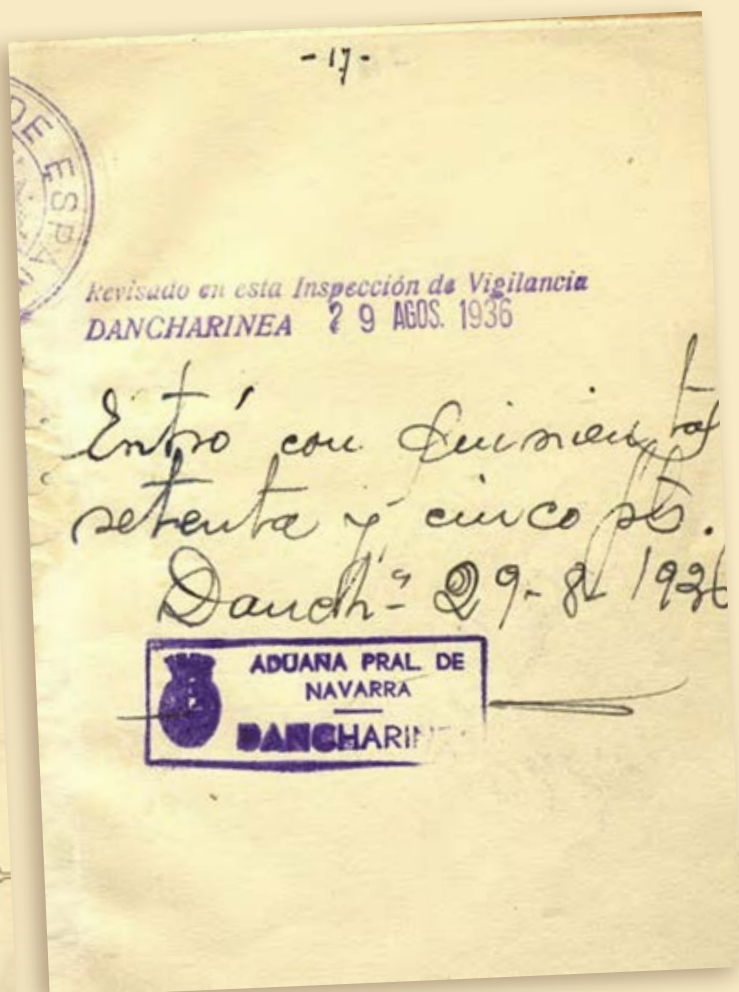 - 17 -
DE ESPAÑ
Revisado en esta Inspección de Vigilancia
DANCHARINEA 29 AGOS. 1936
Entró con quinientas
setenta y cinco pts.
Danchª 29-8-1936
ADUANA PRAL. DE
NAVARRA
DANCHARINEA